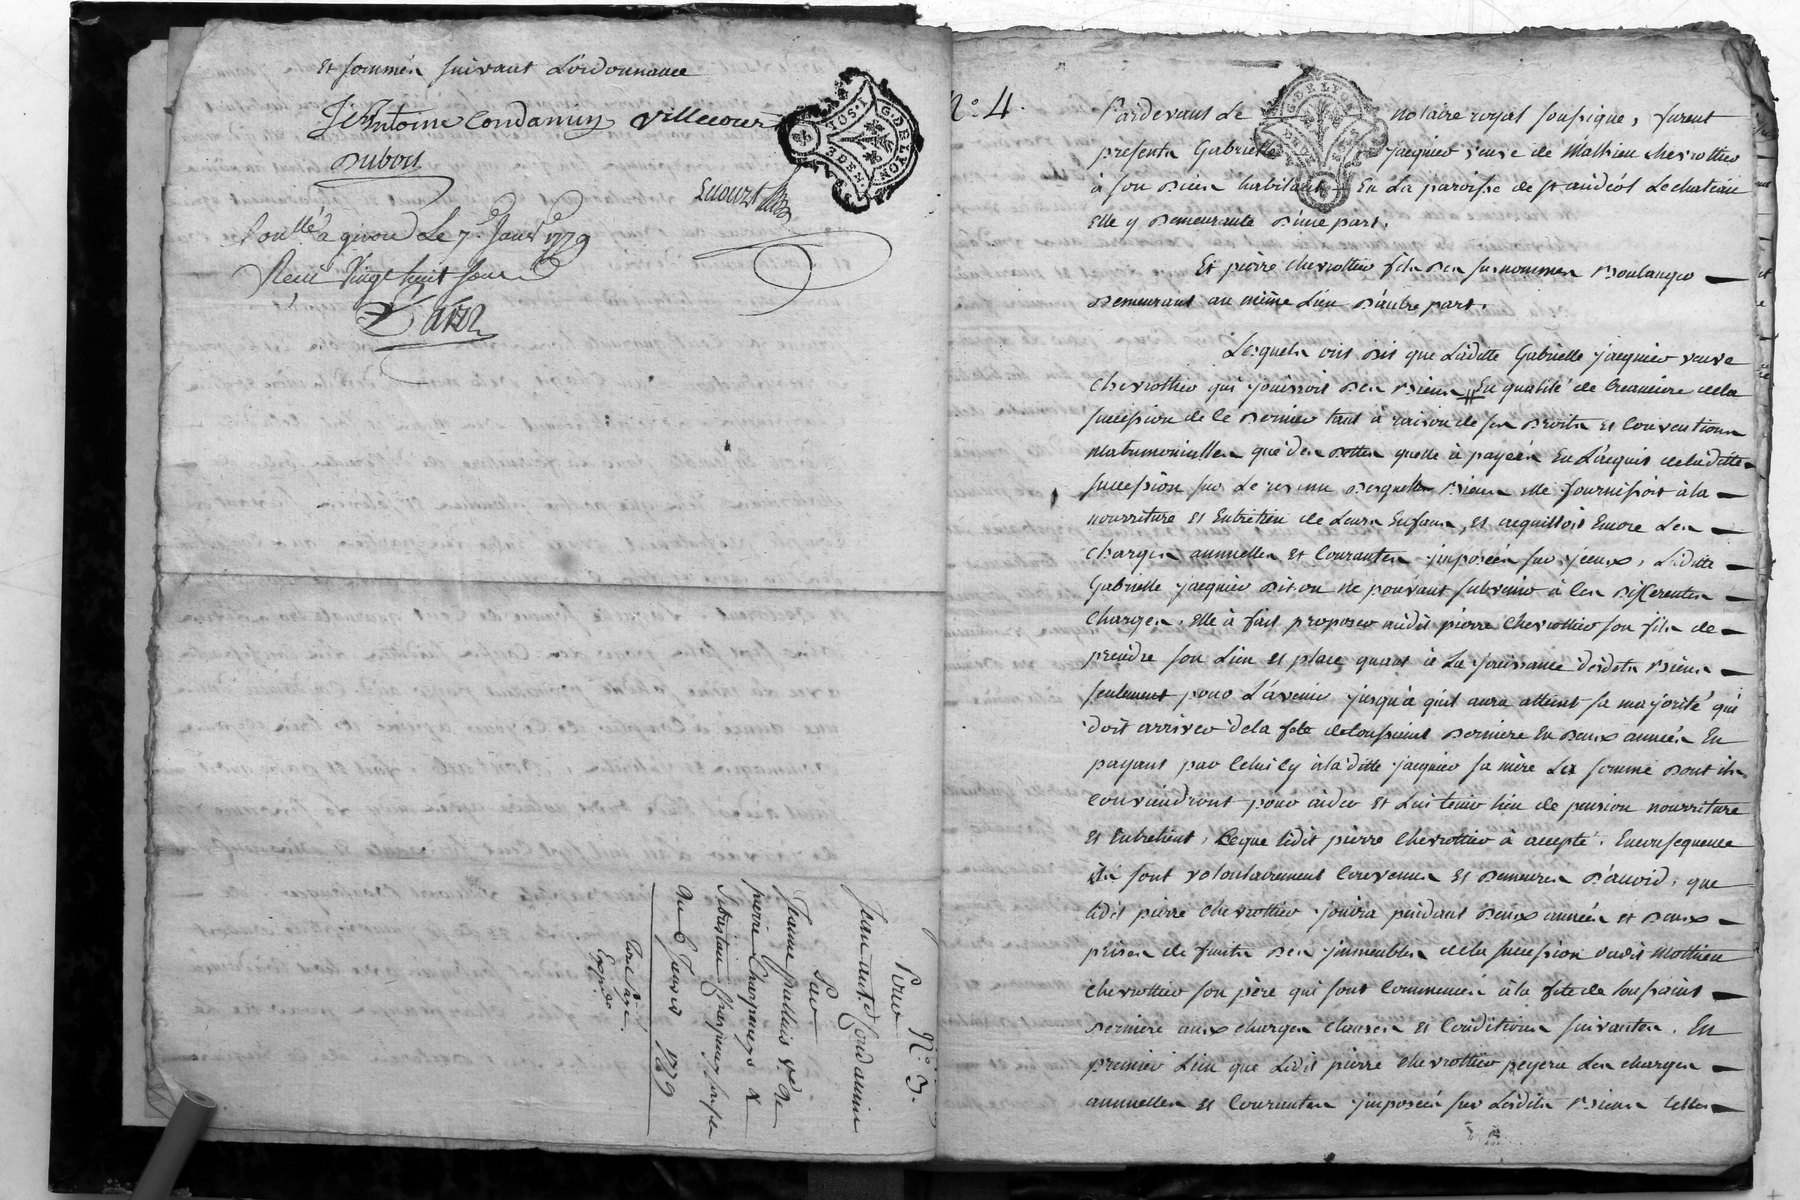 et sommés suivant L'ordonnance
Jean Antoine Condamin Villecourt
Dubost
Lecourt
G. DE LYON
Conllé a givors Le 7e Janvr 1779
Reçu vingt huit sous
N° 3.
Prix
Jean Ant.e Condamin
Par
Jeanne paillasis vve de
pierre Charpenay &
Sebastien Charpenay son fils
Du 6 Janvier 1779
Expédié
N° 4.
G. DE LYON
Pardevant Le notaire royal soussigné, furent
presents Gabrielle jacquier veuve de Mathieu chevrottier
à son vivant habitant En La paroisse de st andéol Le chateau
elle y Demeurante D'une part,
Et pierre chevrottier fils Des susnommés Boulanger
Demeurant au même Lieu D'autre part.
Lesquels ont dit que Ladite Gabrielle jacquier veuve
chevrottier qui jouissoit Des Biens En qualité de Creancière de la
succession de Ce Dernier tant à raison de ses Droits et Conventions
Matrimonielles que des dettes quelle à payées En L'acquit de la ditte
succession sur Le revenu Desquels Biens elle fournissoit à la
nourriture et Entretien de Leurs Enfans, et acquittoit Encore Les
charges annuelles et Courantes jmposées sur jceux, Laditte
Gabrielle jacquier ne pouvant subvenir à Ces Differentes
charges, elle à fait proposer audit pierre chevrottier son fils de
prendre son Lieu et place quant à La jouissance desdits Biens
seulement pour L'avenir jusqu'a quil aura atteint sa majorité qui
doit arriver de la fete de toussaint Derniere En Deux années En
payant par Celui cy à la ditte jacquier sa mère La somme Dont ils
conviendront pour aider et Lui tenir lieu de pension nourriture
et Entretient, Ce que ledit pierre chevrottier à accepté. En consequence
ils sont volontairement Convenus et Demeurés D'accord, que
ledit pierre chevrottier jouira pendant Deux années et Deux
prises de fruits Des jmmeubles de la succession dudit Mathieu
chevrottier son père qui sont Commencé à la fete de toussaint
Derniere aux charges clauses et Conditions suivantes. En
premier Lieu que Ledit pierre chevrottier payera Les charges
annuelles et Courantes jmposées sur Lesdits Biens telles